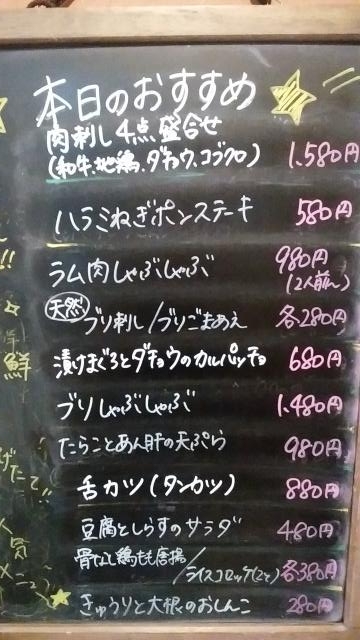 本日のおすすめ
肉刺し4点盛合せ
(和牛、地鶏、ダチョウ、コブクロ) 1.580円
ハラミねぎポンステーキ 580円
ラム肉しゃぶしゃぶ 980円
(2人前〜)
天然 ブリ刺し/ブリごまあえ 各280円
漬けまぐろとダチョウのカルパッチョ 680円
ブリしゃぶしゃぶ 1.480円
たらことあん肝の天ぷら 980円
舌カツ(タンカツ) 880円
豆腐としらすのサラダ 480円
骨なし鶏もも唐揚/ライスコロッケ(2ヶ) 各380円
きゅうりと大根のおしんこ 280円